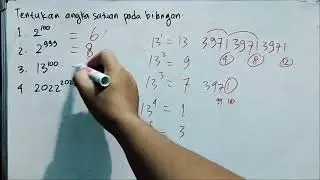 Tentukan angka satuan pada bilangan
1. 2¹⁰⁰ = 6
2. 2⁹⁹⁹ = 8
3. 13¹⁰⁰
4. 2022²⁰²
13¹ = 13
13² = 9
13³ = 7
13⁴ = 1
= 3
3971 3971 3971
4 8 12
3971
99 100